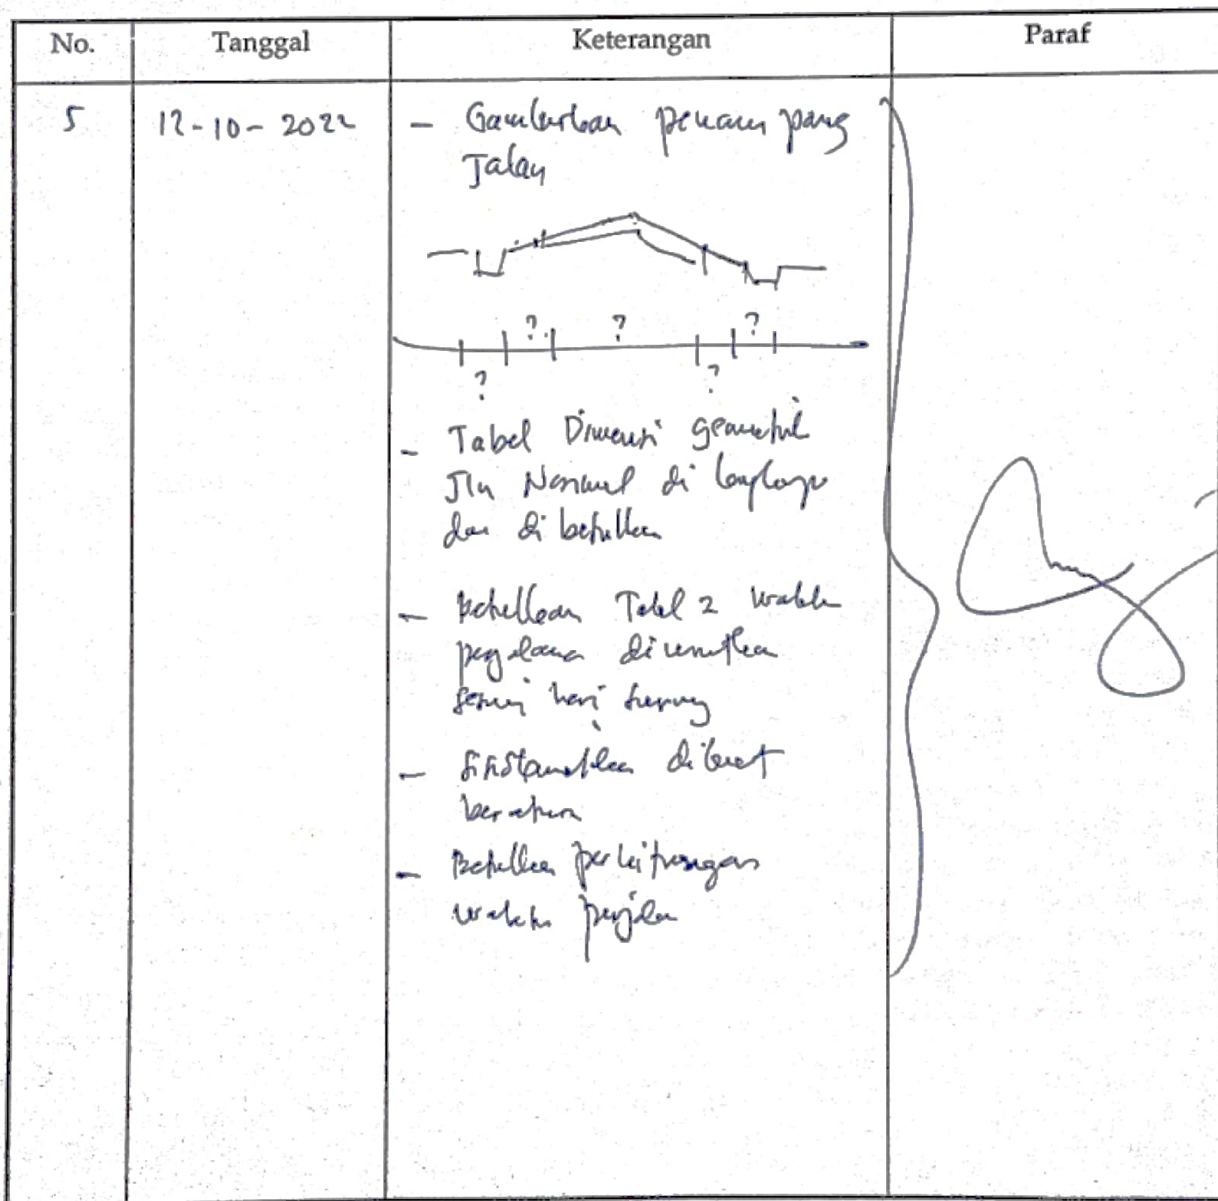 No. Tanggal Keterangan Paraf
5 12-10-2022 - Gambarkan penampang
Jalan
? ? ?
? ?
- Tabel Dimensi geometrik
Jln Nasional di lengkapi
dan di betulkan
- Betulkan Tabel 2 waktu
di
hari
- dibuat
- Betulkan perhitungan
waktu perjalan